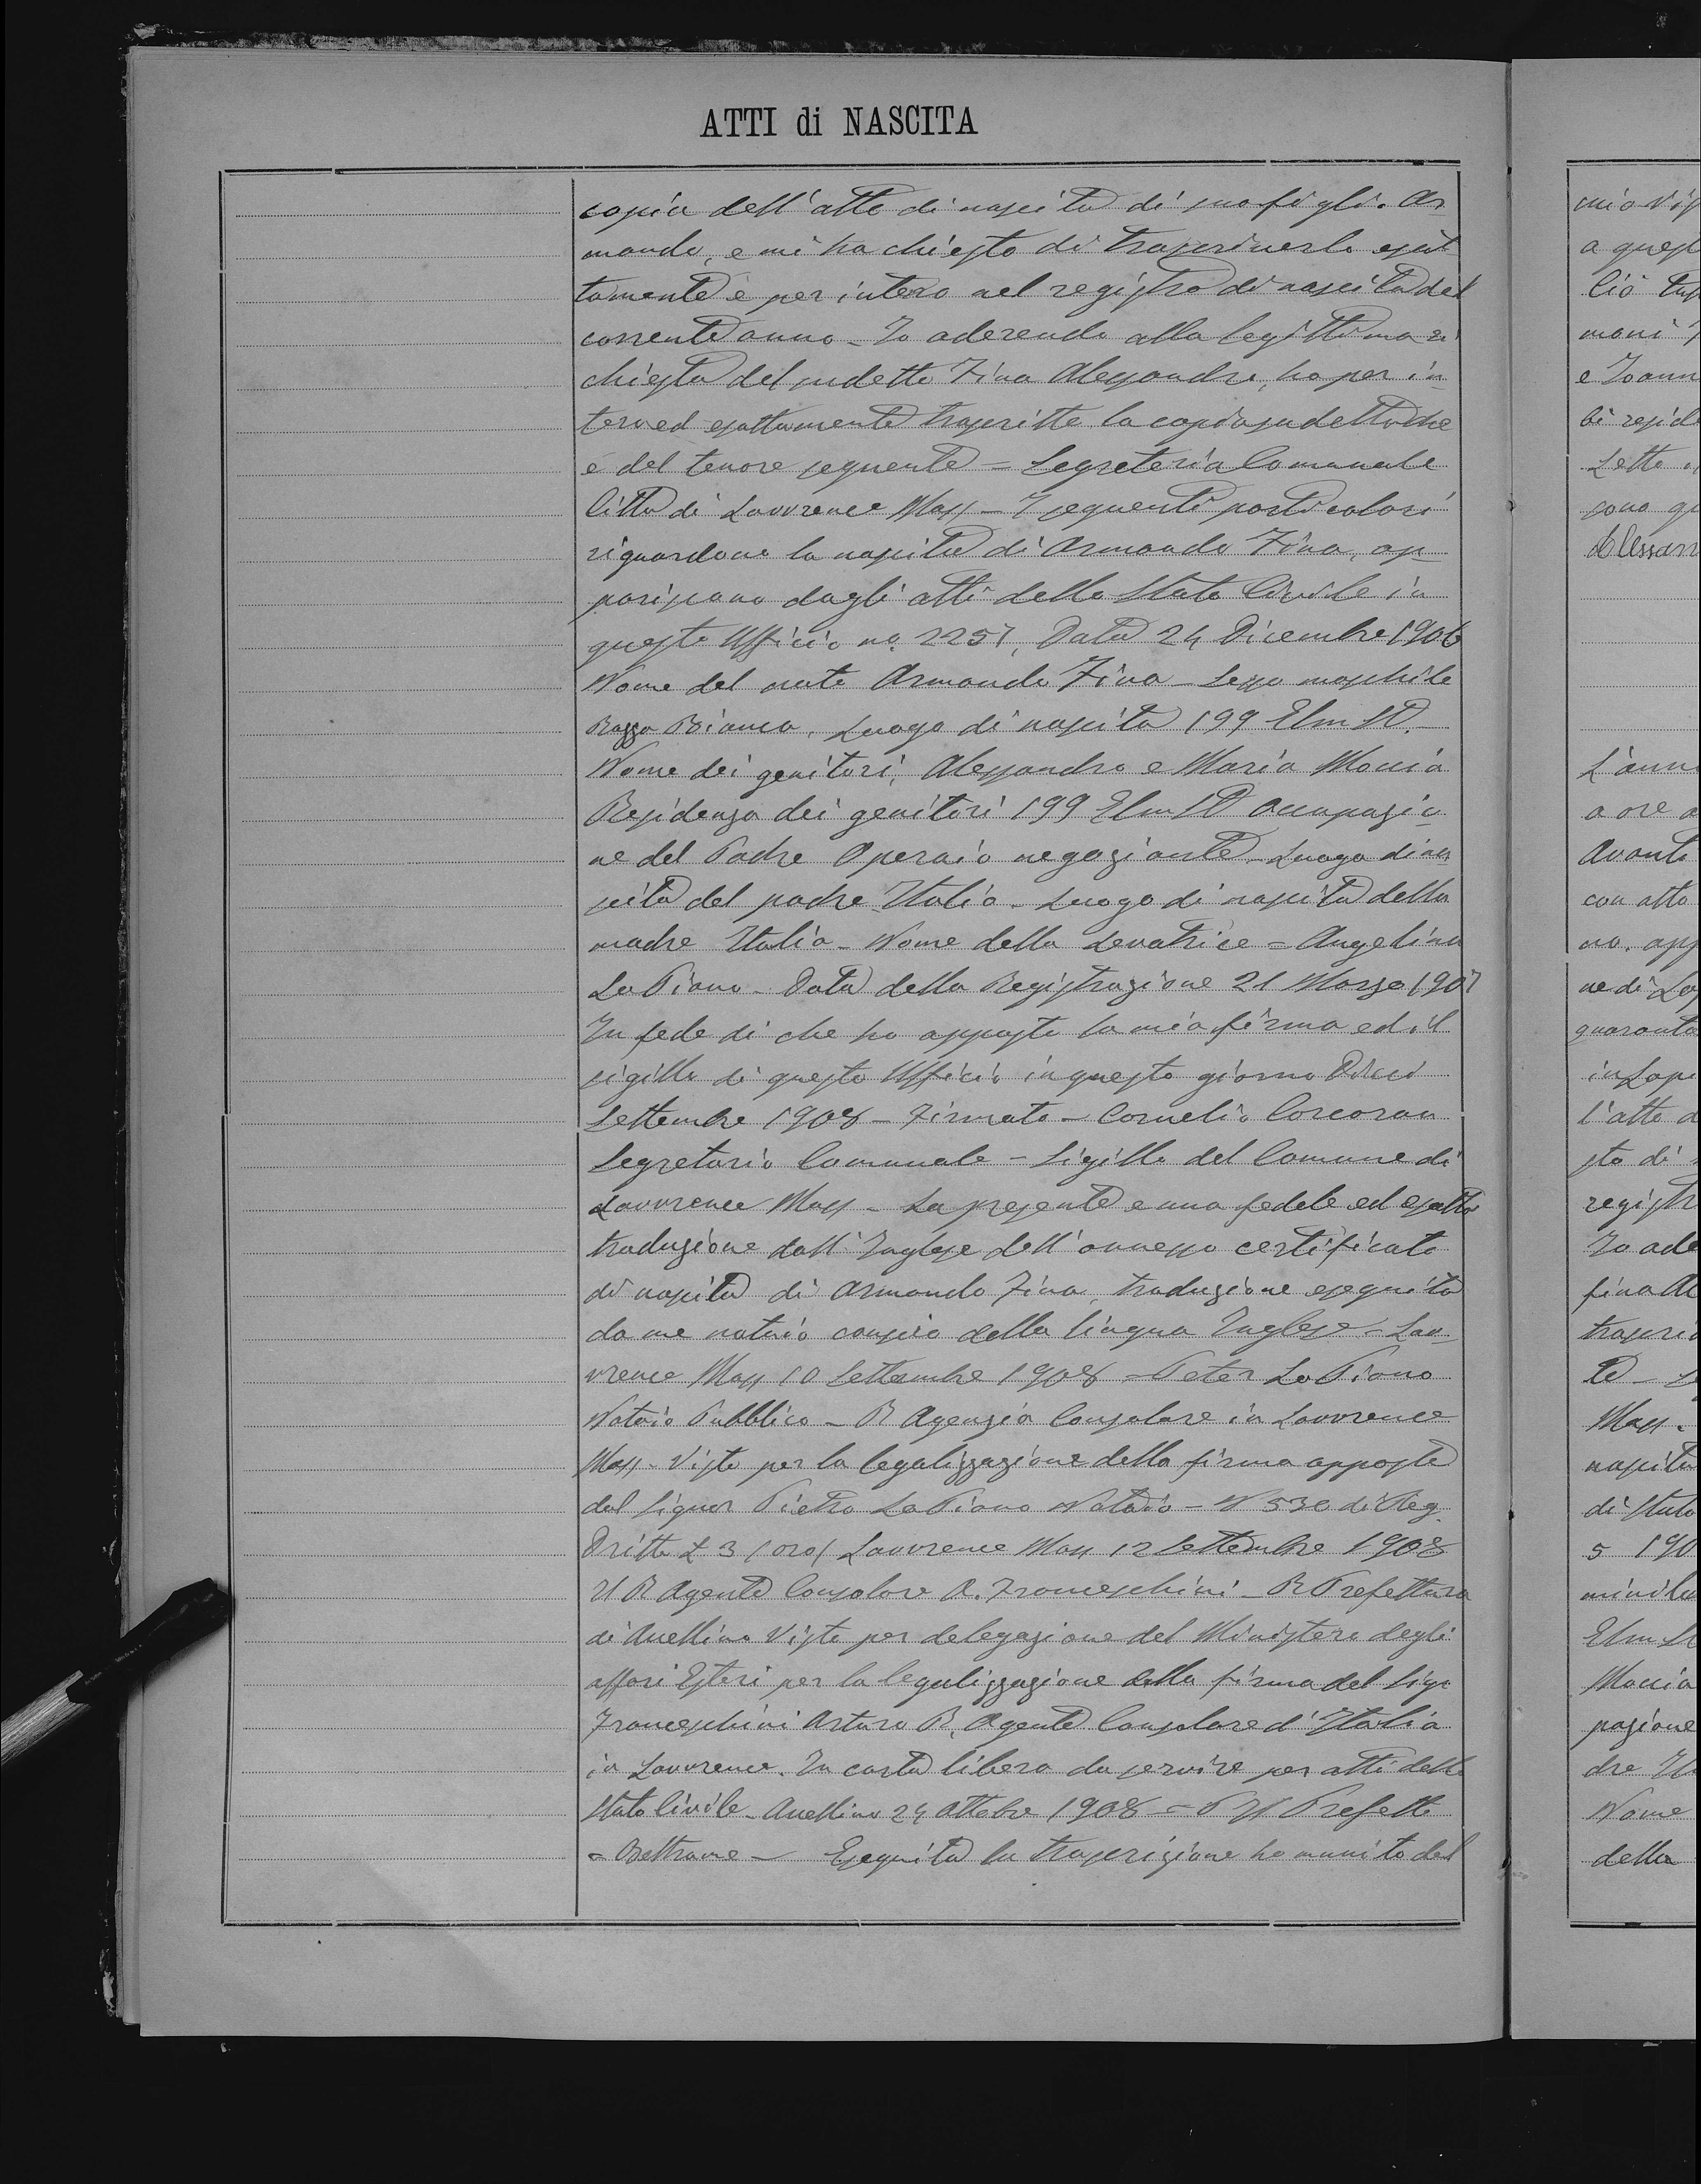 ATTI di NASCITA
copia dell'atto di nascita di suo figlio Ar-
mando, e mi ha chiesto di trascriverlo esat
tamente e per intero nel registro di nascita del
corrente anno - Io aderendo alla legittima ri
chiesta del sudetto Fina Alessandro, ho per in-
tero ed esattamente trascritto la copia sudetta che
è del tenore seguente = Segreteria Comunale
Città di Lavvrence Mass - I seguenti particolari
riguardano la nascita di Armando Fina, ap-
pariscono dagli atti dello Stato Civile in
questo Ufficio no. 2257, Data 24 Dicembre 1906
Nome del nato Armando Fina - Sesso maschile
Razza Bianca, Luogo di nascita 199 Elm St.-
Nome dei genitori, Alessandro e Maria Moccia
Residenza dei genitori 199 Elm St Occupazio
ne del Padre Operaio negoziante - Luogo di na
scita del padre Italia - Luogo di nascita della
madre Italia - Nome della Levatrice = Angelina
La Piana - Data della Registrazione 21 Marzo 1907
In fede di che ho apposto la mia firma ed il
sigillo di questo Ufficio in questo giorno Dieci
Settembre 1908 - Firmato - Cornelio Corcoran
Segretario Comunale - Sigillo del Comune di
Lavvrence Mass - La presente e una fedele ed esatta
traduzione dall'Inglese dell'annesso certificato
di nascita di Armando Fina, traduzione eseguita
da me notaio conscio della lingua Inglese - Lav-
vrence Mass 10 Settembre 1908 = Peter La Piana
Notaio Pubblico - R Agenzia Consolare in Lavvrence
Mass - Visto per la legalizzazione della firma apposta
dal Signor Pietro La Piana Notaio - N 530 di Reg.
Dritto £ 3 (oro) Lavvrence Mass 12 Settembre 1908
Il R Agente Consolare A. Franceschini - R Prefettura
di Avellino Visto per delegazione del Ministero degli
affari Esteri per la legalizzazione della firma del Sigr
Franceschini Arturo R. Agente Consolare d'Italia
in Lavvrence. In carta libera da servire per atti dello
Stato Civile - Avellino 24 Ottobre 1908 = P Il Prefetto
= Beltrame - Eseguita la trascrizione ho munito del
mio vi
a quest
Ciò
moni
e Joann
Lette
sono qu
Alessan
L'ann
a ore a
Avanti
con atto
no. app
ne di
quaranta
l'atto
sto di
registr
Io ade
fina Al
Mass.
nascita
di Stato
5 190
Elm St
Moccia
pazione
dre It
Nome
della